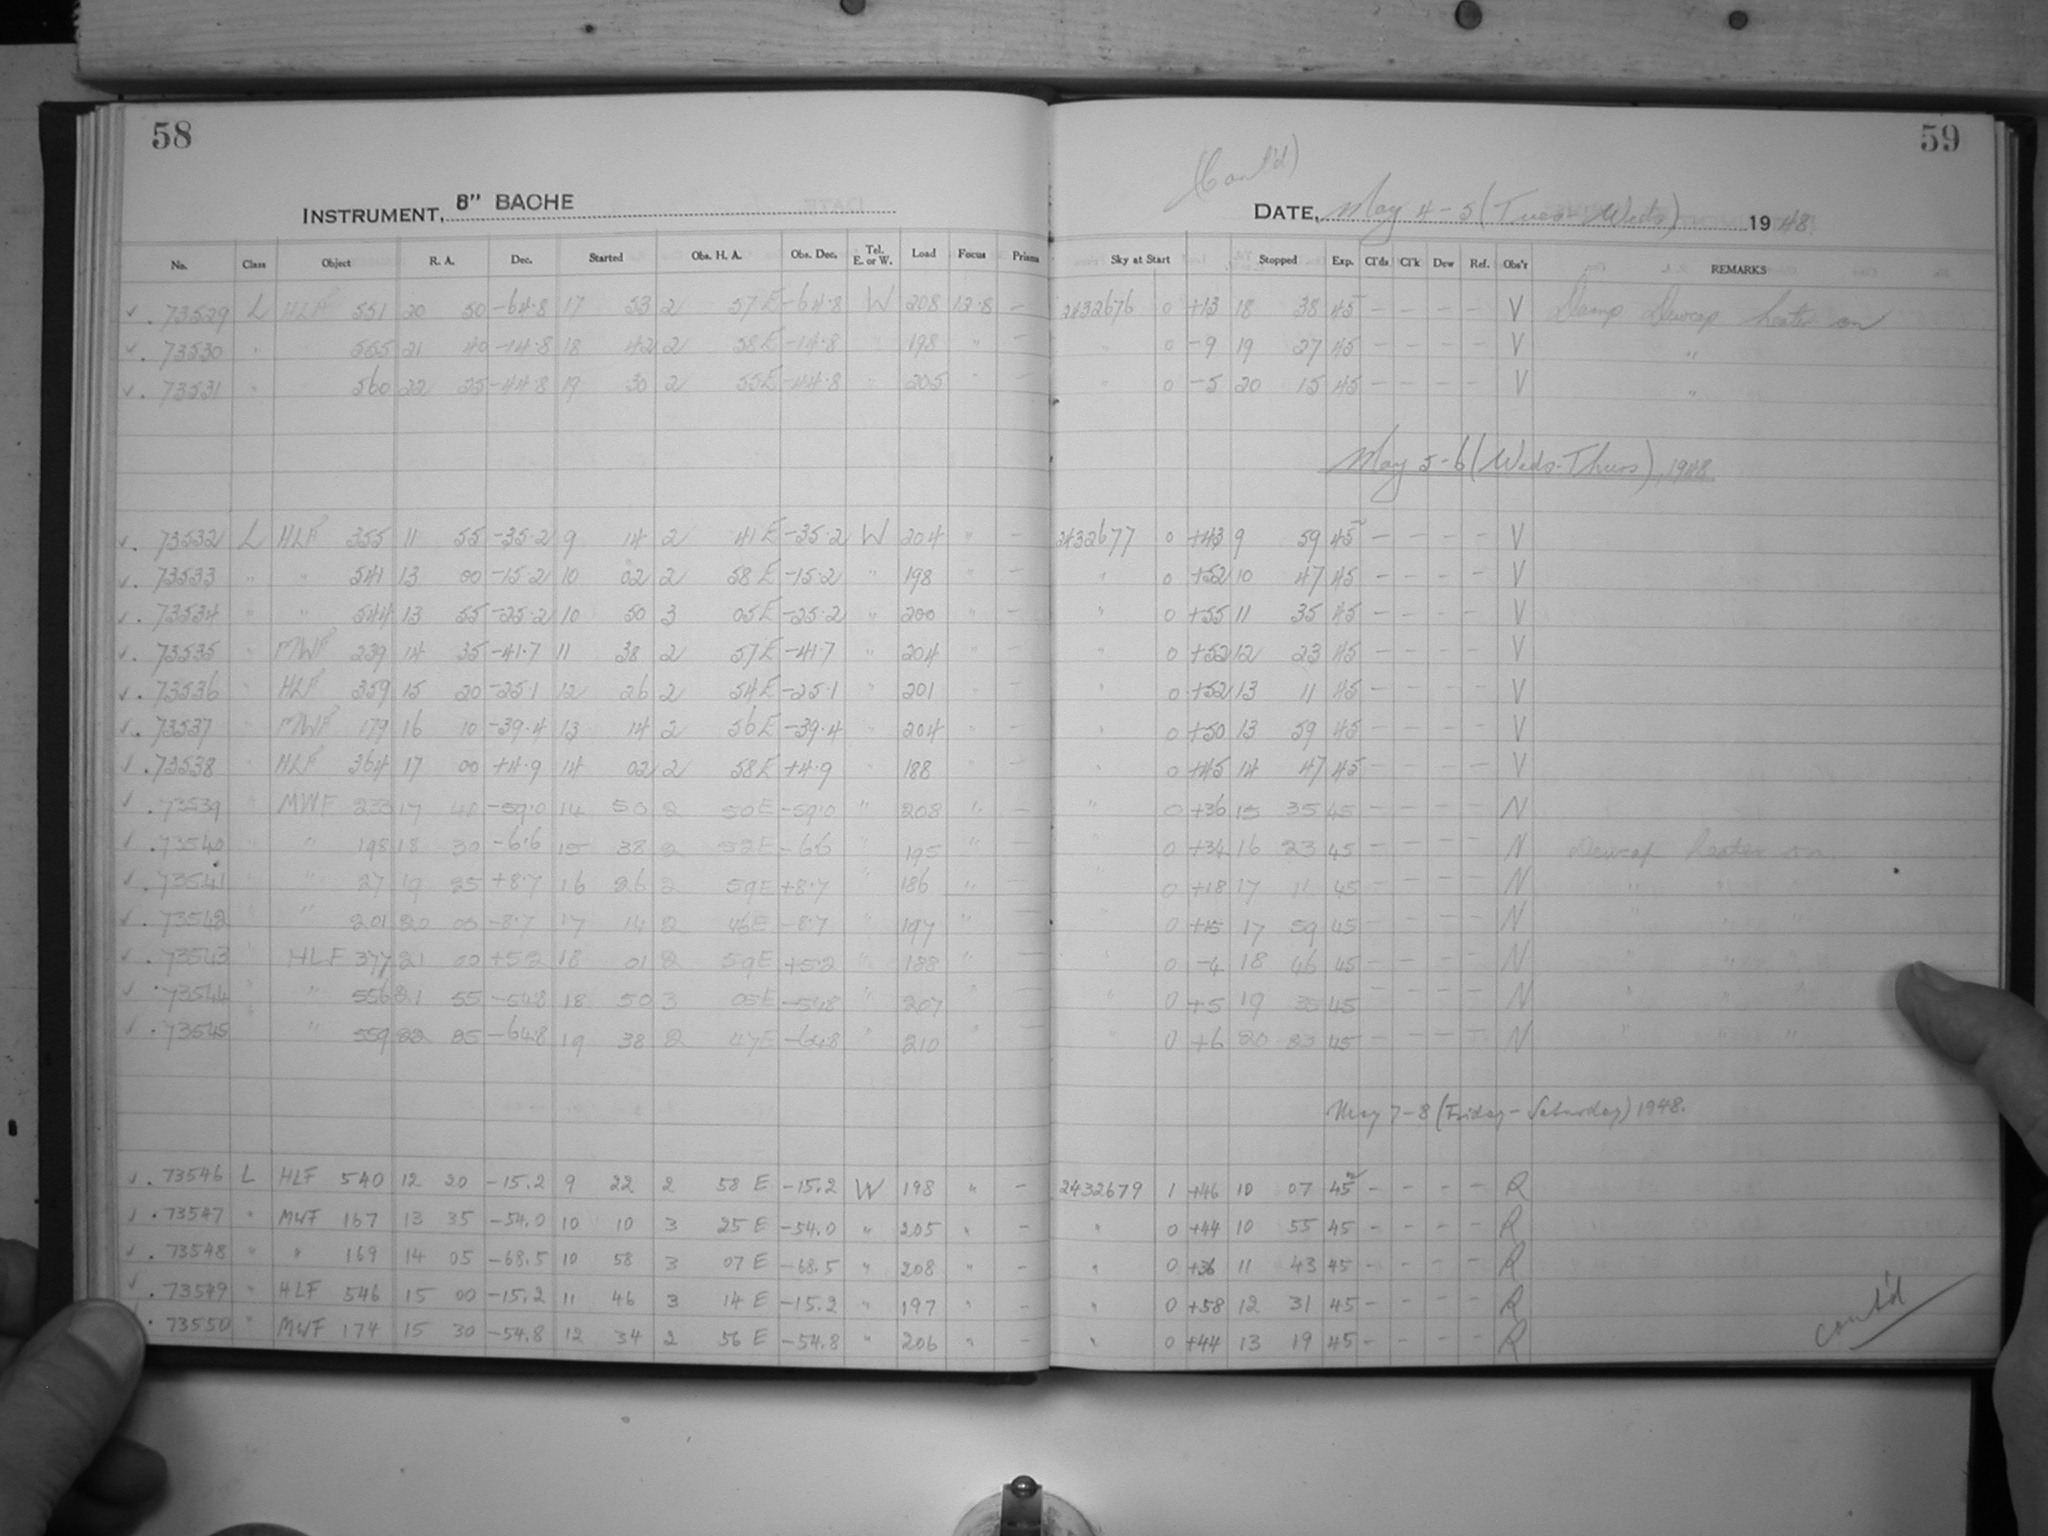 58
INSTRUMENT, 8" BACHE
No. Class Object R. A. Dec. Started Obs. H. A. Obs. Dec. Tel. E. or W. Load Focus Prisms
73529 L HLF 551 20 50 -64.8 17 53 2 57 E -64.8 W 208 12.8 -
73530 " " 555 21 40 -14.8 18 42 2 58 E -14.8 " 198 " -
73531 " 560 22 25 -44.8 19 30 2 55 E -44.8 " 205 " -
73532 L HLF 355 11 55 -35.2 9 14 2 41 E -35.2 W 204 " -
73533 " " 541 13 00 -15.2 10 02 2 58 E -15.2 " 198 " -
73534 " " 544 13 55 -25.2 10 50 3 05 E -25.2 " 200 " -
73535 " MWF 239 14 35 -41.7 11 38 2 57 E -41.7 " 204 " -
73536 " HLF 359 15 20 -25.1 12 26 2 54 E -25.1 " 201 " -
73537 " MWF 179 16 10 -39.4 13 14 2 56 E -39.4 " 204 " -
73538 " HLF 364 17 00 +4.9 14 02 2 58 E +4.9 " 188 " -
73539 " MWF 233 17 40 -59.0 14 50 2 50 E -59.0 " 208 " -
73540 " " 198 18 30 -6.6 15 38 2 52 E -6.6 " 195 " -
73541 " " 27 19 25 +8.7 16 26 2 59 E +8.7 " 186 " -
73542 " " 201 20 00 -8.7 17 14 2 46 E -8.7 " 197 " -
73543 HLF 377 21 00 +5.2 18 01 2 59 E +5.2 " 188 " -
73544 " " 556 21 55 -54.8 18 50 3 05 E -54.8 " 207 " -
73545 " " 559 22 25 -64.8 19 38 2 47 E -64.8 " 210 -
73546 L HLF 540 12 20 -15.2 9 22 2 58 E -15.2 W 198 " -
73547 " MWF 167 13 35 -54.0 10 10 3 25 E -54.0 " 205 " -
73548 " " 169 14 05 -68.5 10 58 3 07 E -68.5 " 208 " -
73549 " HLF 546 15 00 -15.2 11 46 3 14 E -15.2 " 197 " -
73550 " MWF 174 15 30 -54.8 12 34 2 56 E -54.8 " 206 " -
59
(Cont'd)
DATE, May 4-5 (Tues-Weds) 1948
Sky at Start Stopped Exp. Cl'ds Cl'k Dew Ref. Obs'r REMARKS
2432676 0 +13 18 38 45 - - - - V Damp Dewcap heater on
" 0 -9 19 27 45 - - - - V "
" 0 -5 20 15 45 - - - - V "
May 5-6 (Weds-Thurs), 1948
2432677 0 +43 9 59 45 - - - - V
" 0 +52 10 47 45 - - - - V
" 0 +55 11 35 45 - - - - V
" 0 +52 12 23 45 - - - - V
" 0 +52 13 11 45 - - - - V
" 0 +50 13 59 45 - - - - V
" 0 +45 14 47 45 - - - - V
" 0 +36 15 35 45 - - - - N
" 0 +34 16 23 45 - - - - N Dewcap heater on
" 0 +18 17 11 45 - - - - N " " "
0 +15 17 59 45 - - - - N " " "
0 -4 18 46 45 - - - - N " " "
" 0 +5 19 35 45 - - - - N " " "
" 0 +6 20 23 45 - - - - N " " "
May 7-8 (Friday-Saturday) 1948.
2432679 1 +46 10 07 45 - - - - R
" 0 +44 10 55 45 - - - - R
" 0 +36 11 43 45 - - - - R
" 0 +58 12 31 45 - - - - R
" 0 +44 13 19 45 - - - - R
cont'd